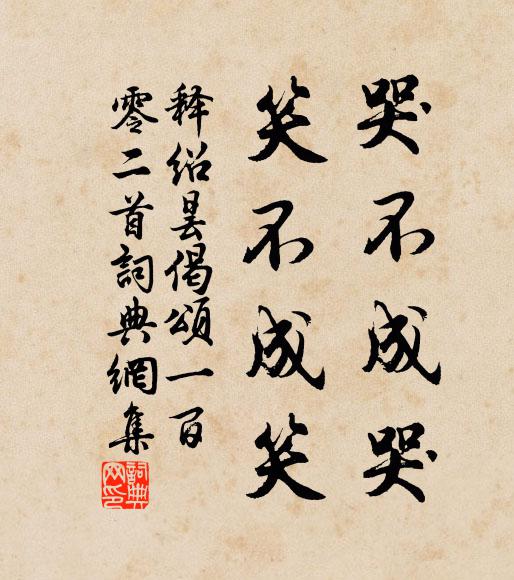 哭不成哭
笑不成笑
释绍昙偈頌一百
零二首詞典網集
詞典網印